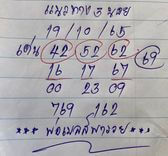 แนวทาง 3 นอย
19 / 10 / 65
เด่น 42 52 62 69
16 17 67
00 23 09
769 162
*** พ่อเมตตาพารวย ***